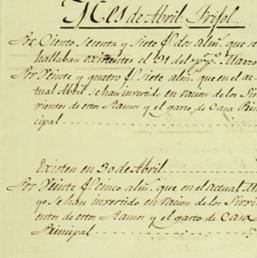 Mes de Abril Frisol.
Por Ciento Setenta y Siete f.s dos alm.s que se
hallaban existentes el 31 del pp.o Marzo
Por Veinte y quatro f.s siete alm.s que en el ac-
tual Abril se han invertido en racion de los Sir-
vientes de estos Ramos y el gasto de Casa Prin-
cipal
Existen en 30 de Abril
Por Veinte f.s cinco alm.s que en el actual Ma-
yo se han invertido en racion de los Sirvi-
entes de estos Ramos y el gasto de Casa
Principal